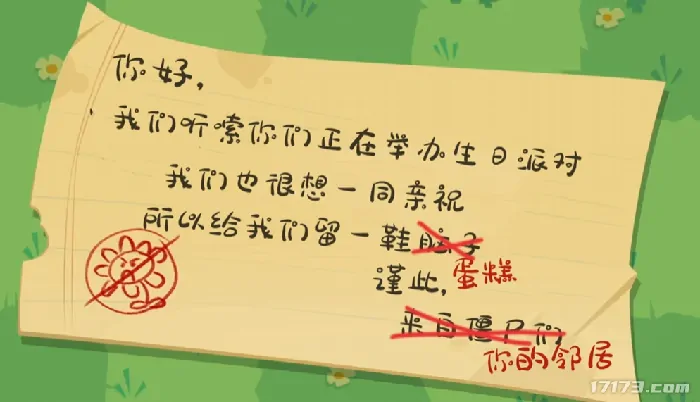 你好,
我们听嗦你们正在举办生日派对
我们也很想一同亲祝
所以给我们留一鞋脑子
蛋糕
谨此,
来自僵尸们
你的邻居
17173.com